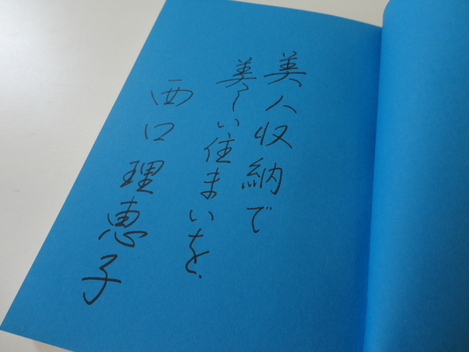 美人収納で
美しい住まいを、
西口理恵子